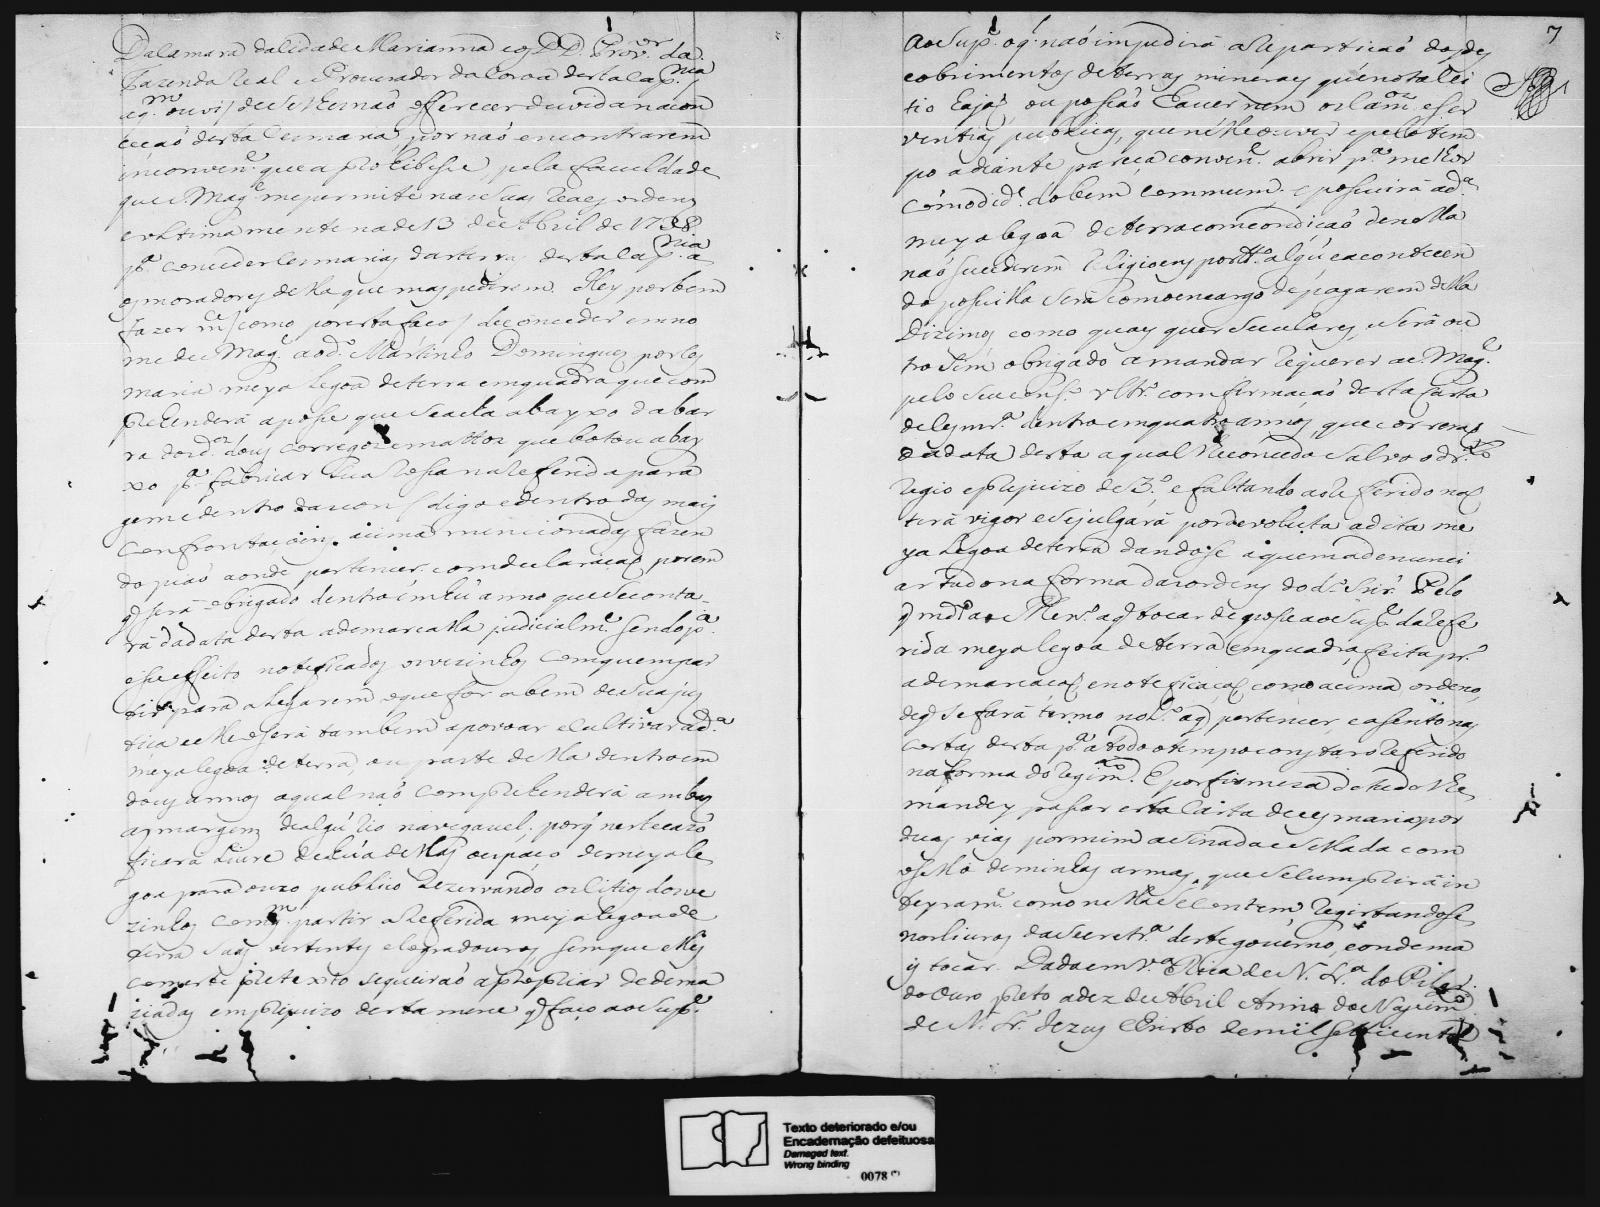 Da Camara da Cidade Marianna e os DD. Prov.or da
Fazenda Real e Procurador da Coroa desta Cap.nia
a q.m ouvi, de se lhe naõ offerecer duvida na con
ceçaõ desta Cesmaria, por naõ encontrarem
inconven.te que a prohibisse, pela faculdade
que S. Mag.e me permite nas suas Reaes ordens
e ultimamente na de 13 de Abril de 1738
p.a conceder Cesmarias das terras desta Cap.nia a
os moradores della que mas pedirem. Hey por bem
fazer m.ce / como por esta faço / de conceder em no
me de S. Mag.e ao d.o Martinho Domingues por ses
maria meya legoa de terra em quadra que com
prehenderá a posse que se acha abayxo da bar
ra dos d.os dous corregos e mattos que botou abay
xo p.a fabricar sua Rossa na referida para
gem e dentro das con / digo e dentro das mais
confrontaçoins asima mencionadas fazen
do piaõ aonde pertencer com declaraçaõ porem
q será obrigado dentro em hũ anno que se conta
rá da data desta a demarcalla judicialm.e sendo p.a
esse effeito noteficados os vizinhos com quem par
tir para allegarem o que for a bem de sua jus
tiça e elle o será tambem a povoar e cultivar a d.a
meya legoa de terra, ou parte della dentro em
dous annos a qual naõ comprehenderá ambas
as margens de algũ Rio navegavel, porq neste cazo
ficará livre de hũa dellas o espaço de meya le
goa para o uzo publico Rezervando os citios dos ve
zinhos com q.m partir a Referida meya legoa de
terra suas vertentes e logradouros, sem que elles
com este pretexto se queiraõ apropriar de dema
ziadas em prejuizo desta merce q faço ao Sup.e
7
ao Sup.e o q.l naõ impedirá a Repartiçaõ dos des
cobrimentos de terras mineraes que no tal ci
tio hajaõ ou possaõ haver nem os cam.os e ser
ventias publicas, que nelle ouver e pelo tem
po adiante pareça conven.te abrir p.a melhor
cõmodid.e do bem commum. e possuirá a d.a
meya legoa de terra com condiçaõ de nella
naõ sucederem Religioens por tt.o algũ e aconteçen
do possuilla será com o encargo de pagarem della
Dizimos como quaes quer Seculares, e será ou
tro sim obrigado a mandar Requerer a S. Mag.e
pelo seu cons.o ultr.o comfirmaçaõ desta Carta
de sesmr.a dentro em quatro annos, que correraõ
da data desta a qual lhe concedo salvo o dr.to
Regio e prejuizo de 3.o e faltando ao referido naõ
terá vigor e se julgará por devoluta a dita me
ya legoa de terra dandose a quem a denunci
ar tudo na forma das ordens do d.o Snr. Pelo
q mdo ao Men.o a q tocar de posse ao Sup.e da Refe
rida meya legoa de terra em quadra, feita pr.o
a demarcaçaõ e noteficaçaõ como acima ordeno,
de q se fará termo no L.o a q pertencer, e asento nas
costas desta p.a a todo o tempo constar o Referido
na forma do Regim.to E por firmeza de tudo lhe
mandey passar esta Carta de sesmaria por
duas vias por mim asinada e sellada com
o Sello de minhas armas, que se cumprirá in
teyram.e como nella se contem, Registandose
nos livros da Secretr.a deste governo, e onde ma
is tocar. Dada em V.a Rica de N. Sr.a do Pilar
do Ouro preto a dez de Abril Anno do Nascim.to
de N. Sr. Jezus Christo de mil Setecentos
Texto deteriorado e/ou
Encadernação defeituosa
Damaged text.
Wrong binding
0078